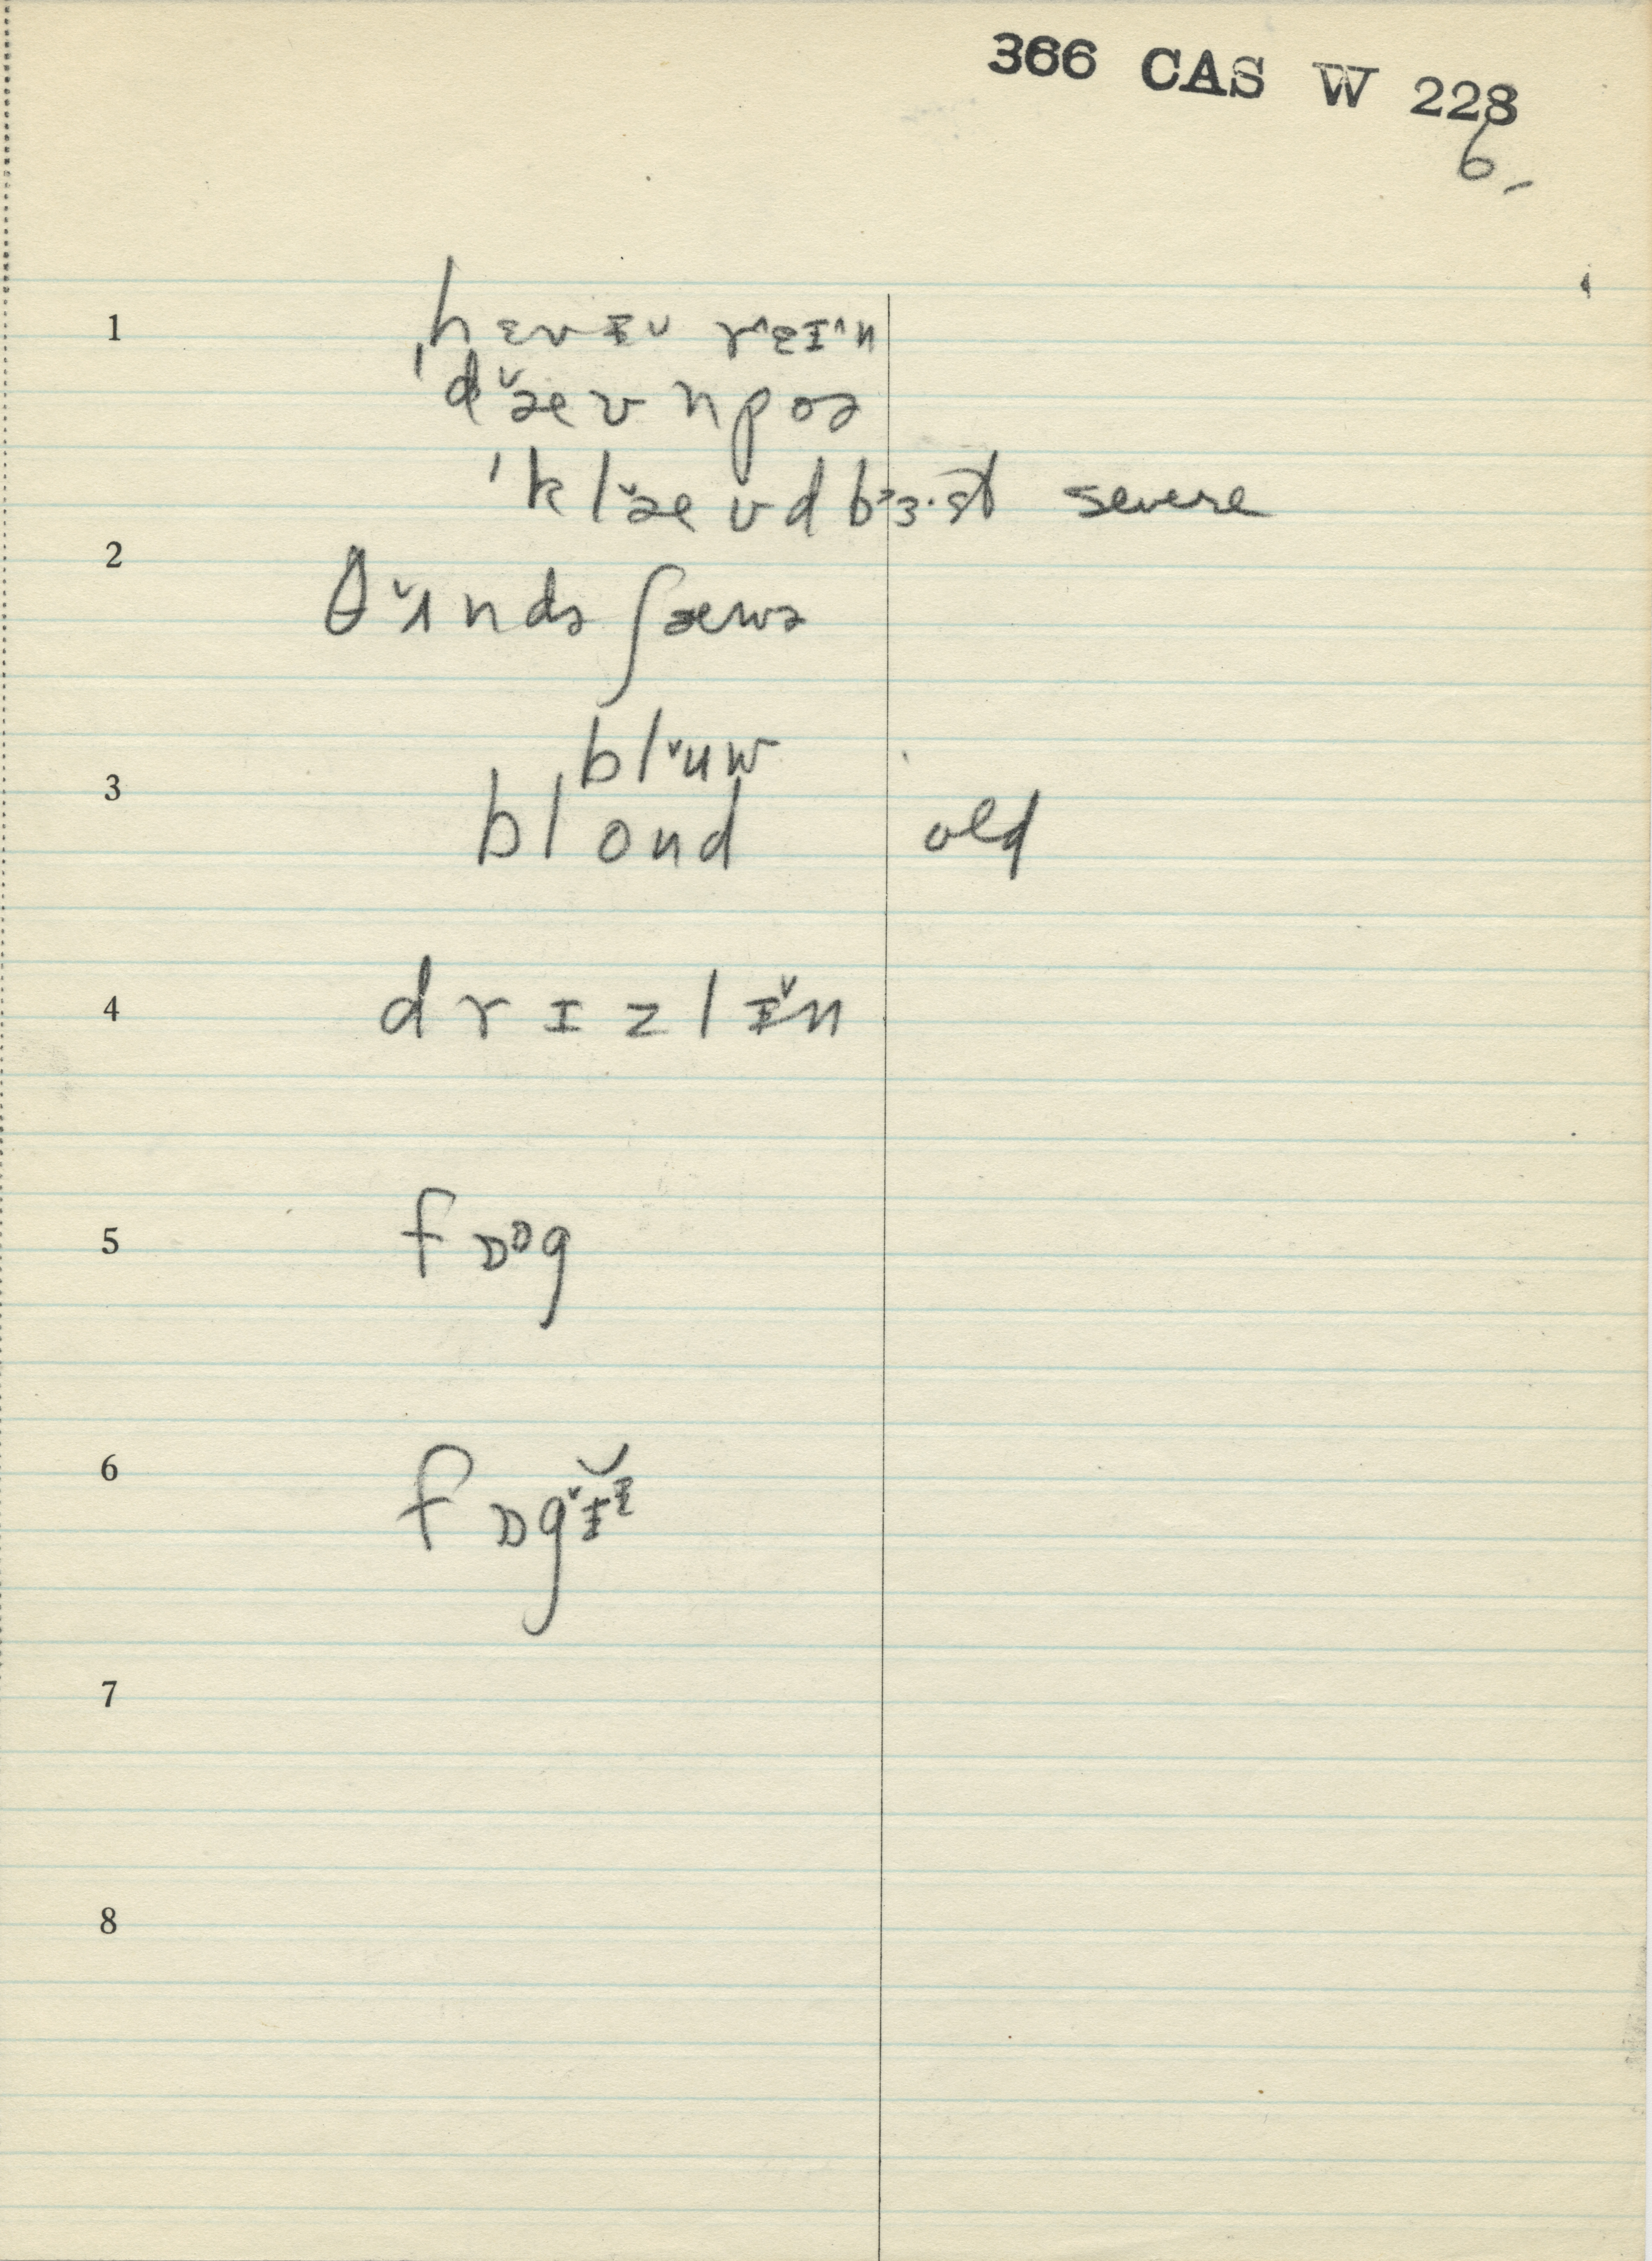 366 CAS W 228
6
1
hɛvᵻ˅ rˆɛɪˆn
ˈd˅æʊnpoə
ˈkl˅æʊdbᶾɜ·st severe
2
θ˅ʌndə ʃæwə
bl˅uw
3
blond old
4
drɪzlᵻ˅n
5
fɒᶛg
6
fɒg˅ᵻᶧ
7
8